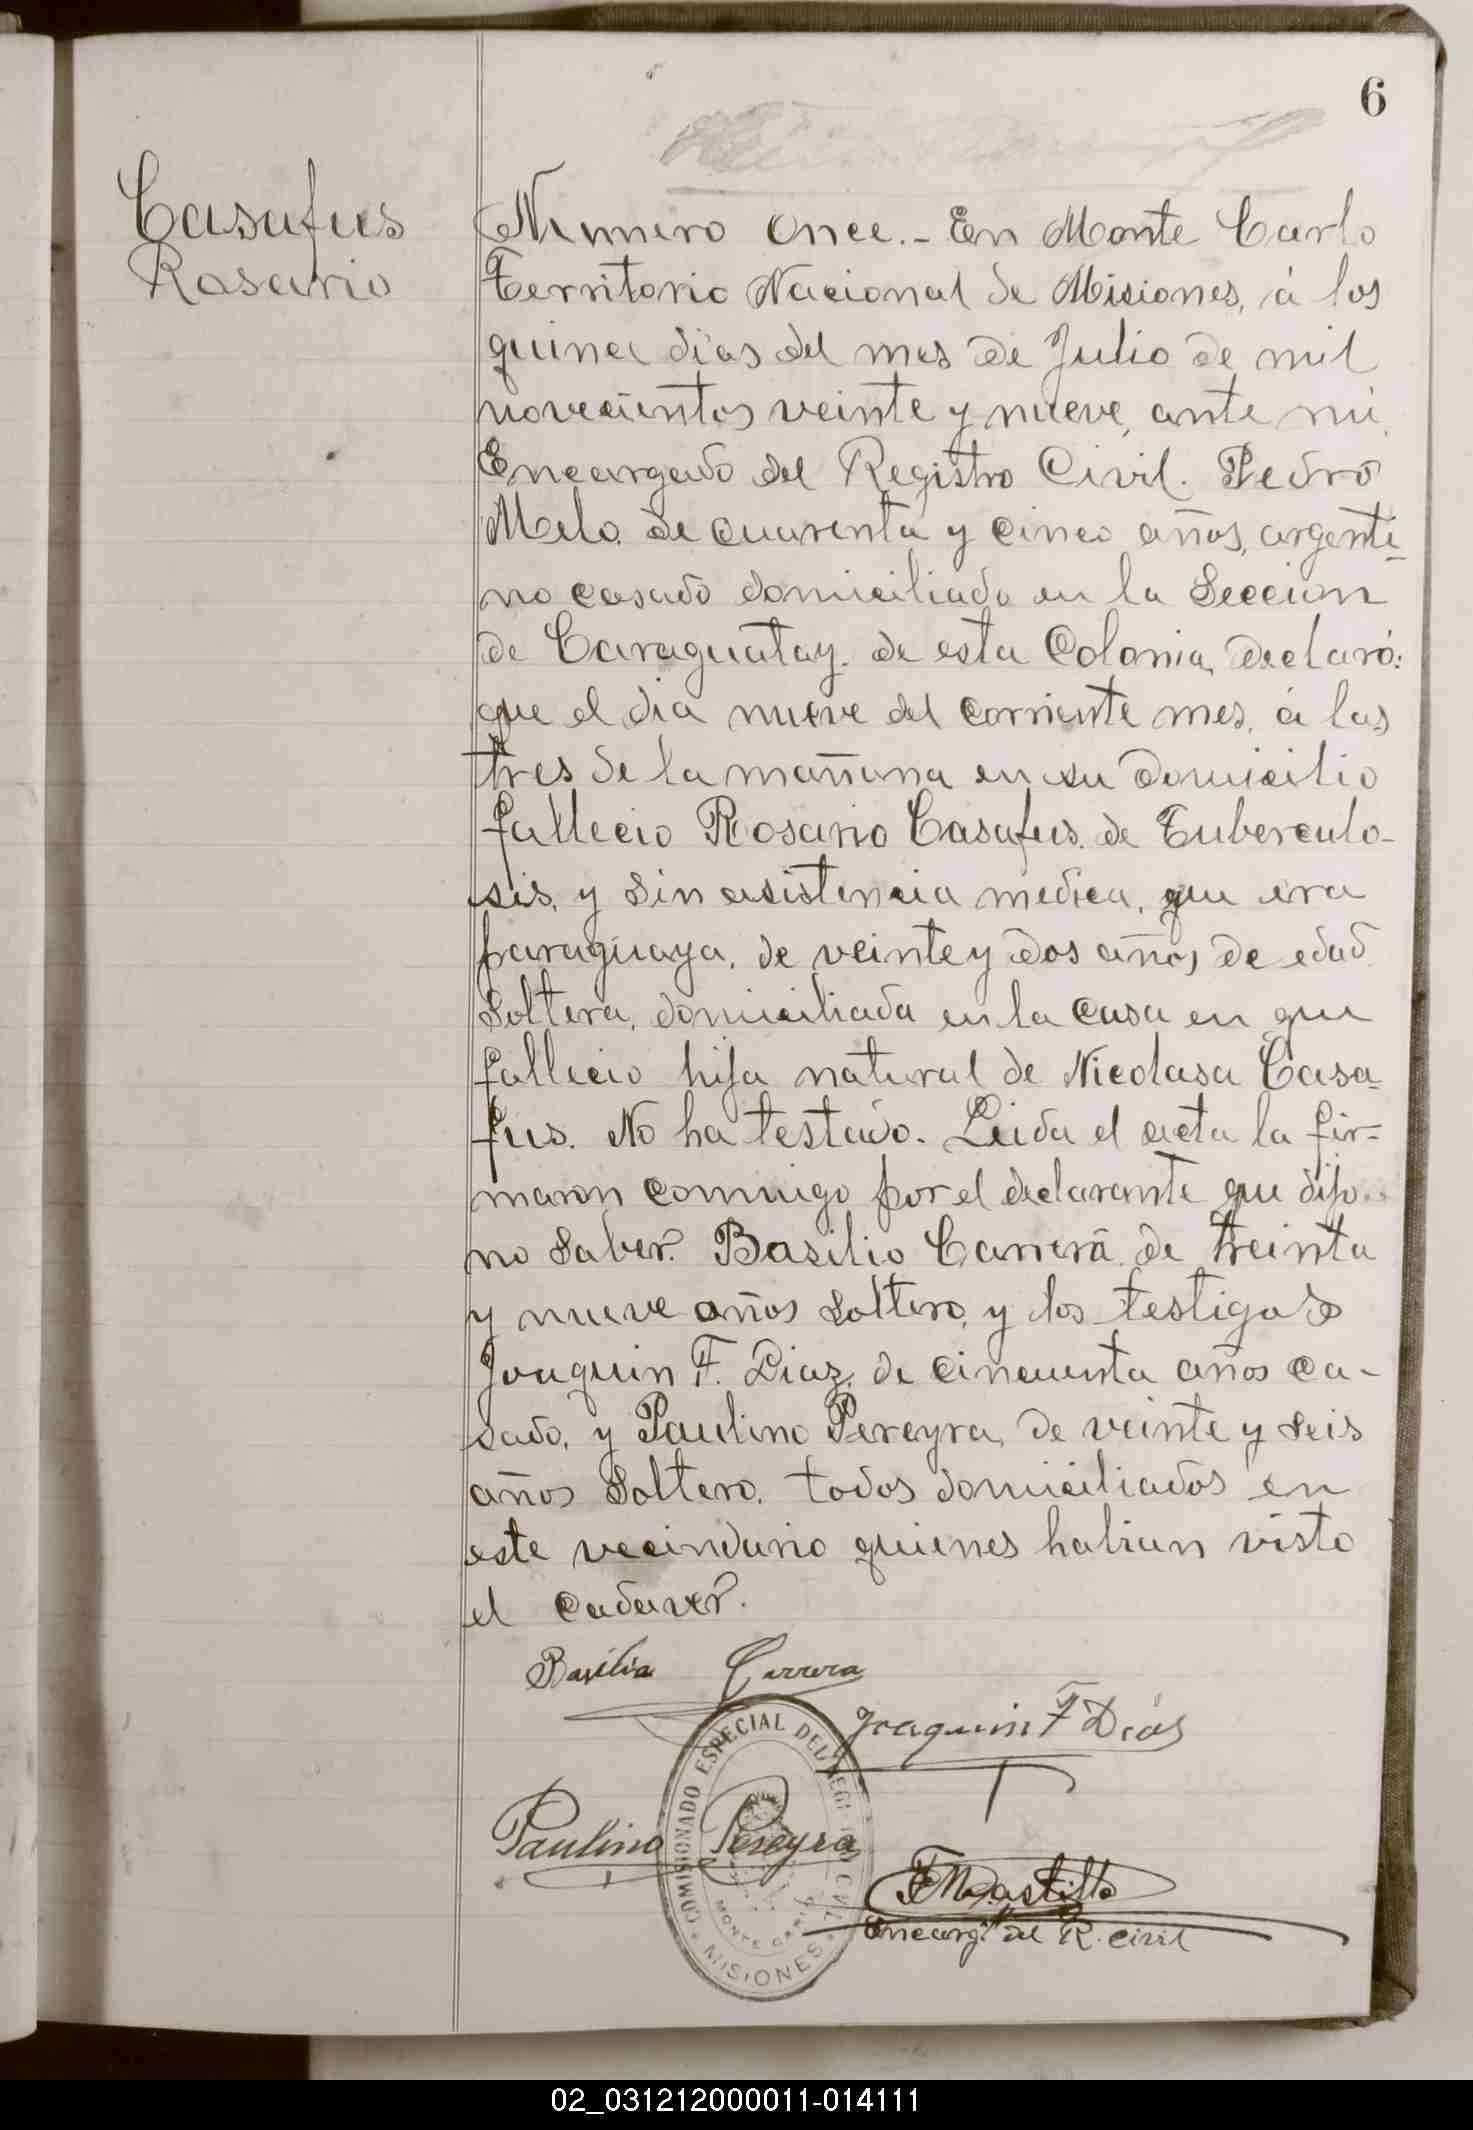 6
Casafus
Rosario
Numero Once.- En Monte Carlo
Territorio Nacional de Misiones, á los
quince dias del mes de Julio de mil
novecientos veinte y nueve, ante mi,
Encargado del Registro Civil. Pedro
Melo. de cuarenta y cinco años, argenti=
no casado domiciliado en la Seccion
de Caraguatay. de esta Colonia, declaró:
que el dia nueve del corriente mes, á las
tres de la mañana en su domicilio
fallecio Rosario Casafus. de Tuberculo-
sis, y sin asistencia medica, que era
paraguaya, de veinte y dos años de edad
Soltera, domiciliada en la casa en que
fallecio hija natural de Nicolasa Casa=
fus. No ha testado. Leida el acta la fir=
maron conmigo por el declarante que dijo
no saber. Basilio Carrera de treinta
y nueve años soltero, y los testigos
Joaquin F. Diaz, de cincuenta años ca-
sado, y Paulino Pereyra, de veinte y seis
años soltero. todos domiciliados en
este vecindario quienes habian visto
el cadaver.
Basilia Carrera
Joaquin F Diás
Paulino Pereyra
COMISIONADO ESPECIAL DEL
MONTE
MISIONES
Encarg. del R. Civil
02_031212000011-014111